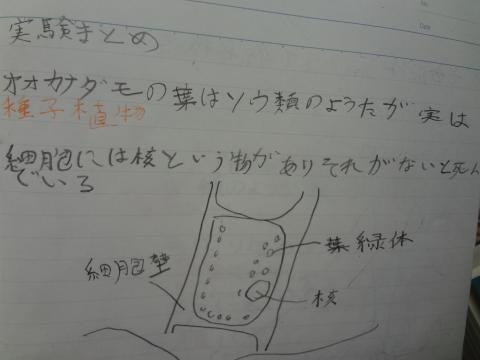 実験まとめ
オオカナダモの葉はソウ類のようだが実は
種子植物
細胞には核という物がありそれがないと死ん
でいる
葉緑体
細胞壁
核